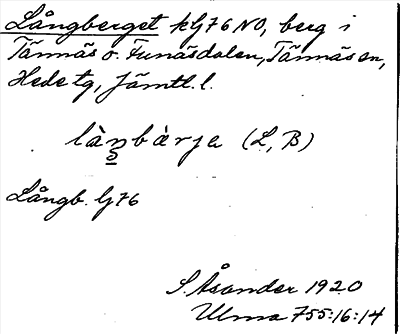 Långberget kG76NO, berg i
Tännäs o. Funäsdalen, Tännäs sn,
Hede tg, Jämtl. l.
làn̥bàrja (L, B)
Långb. G76
S. Åsander 1920
Ulma 755:16:14